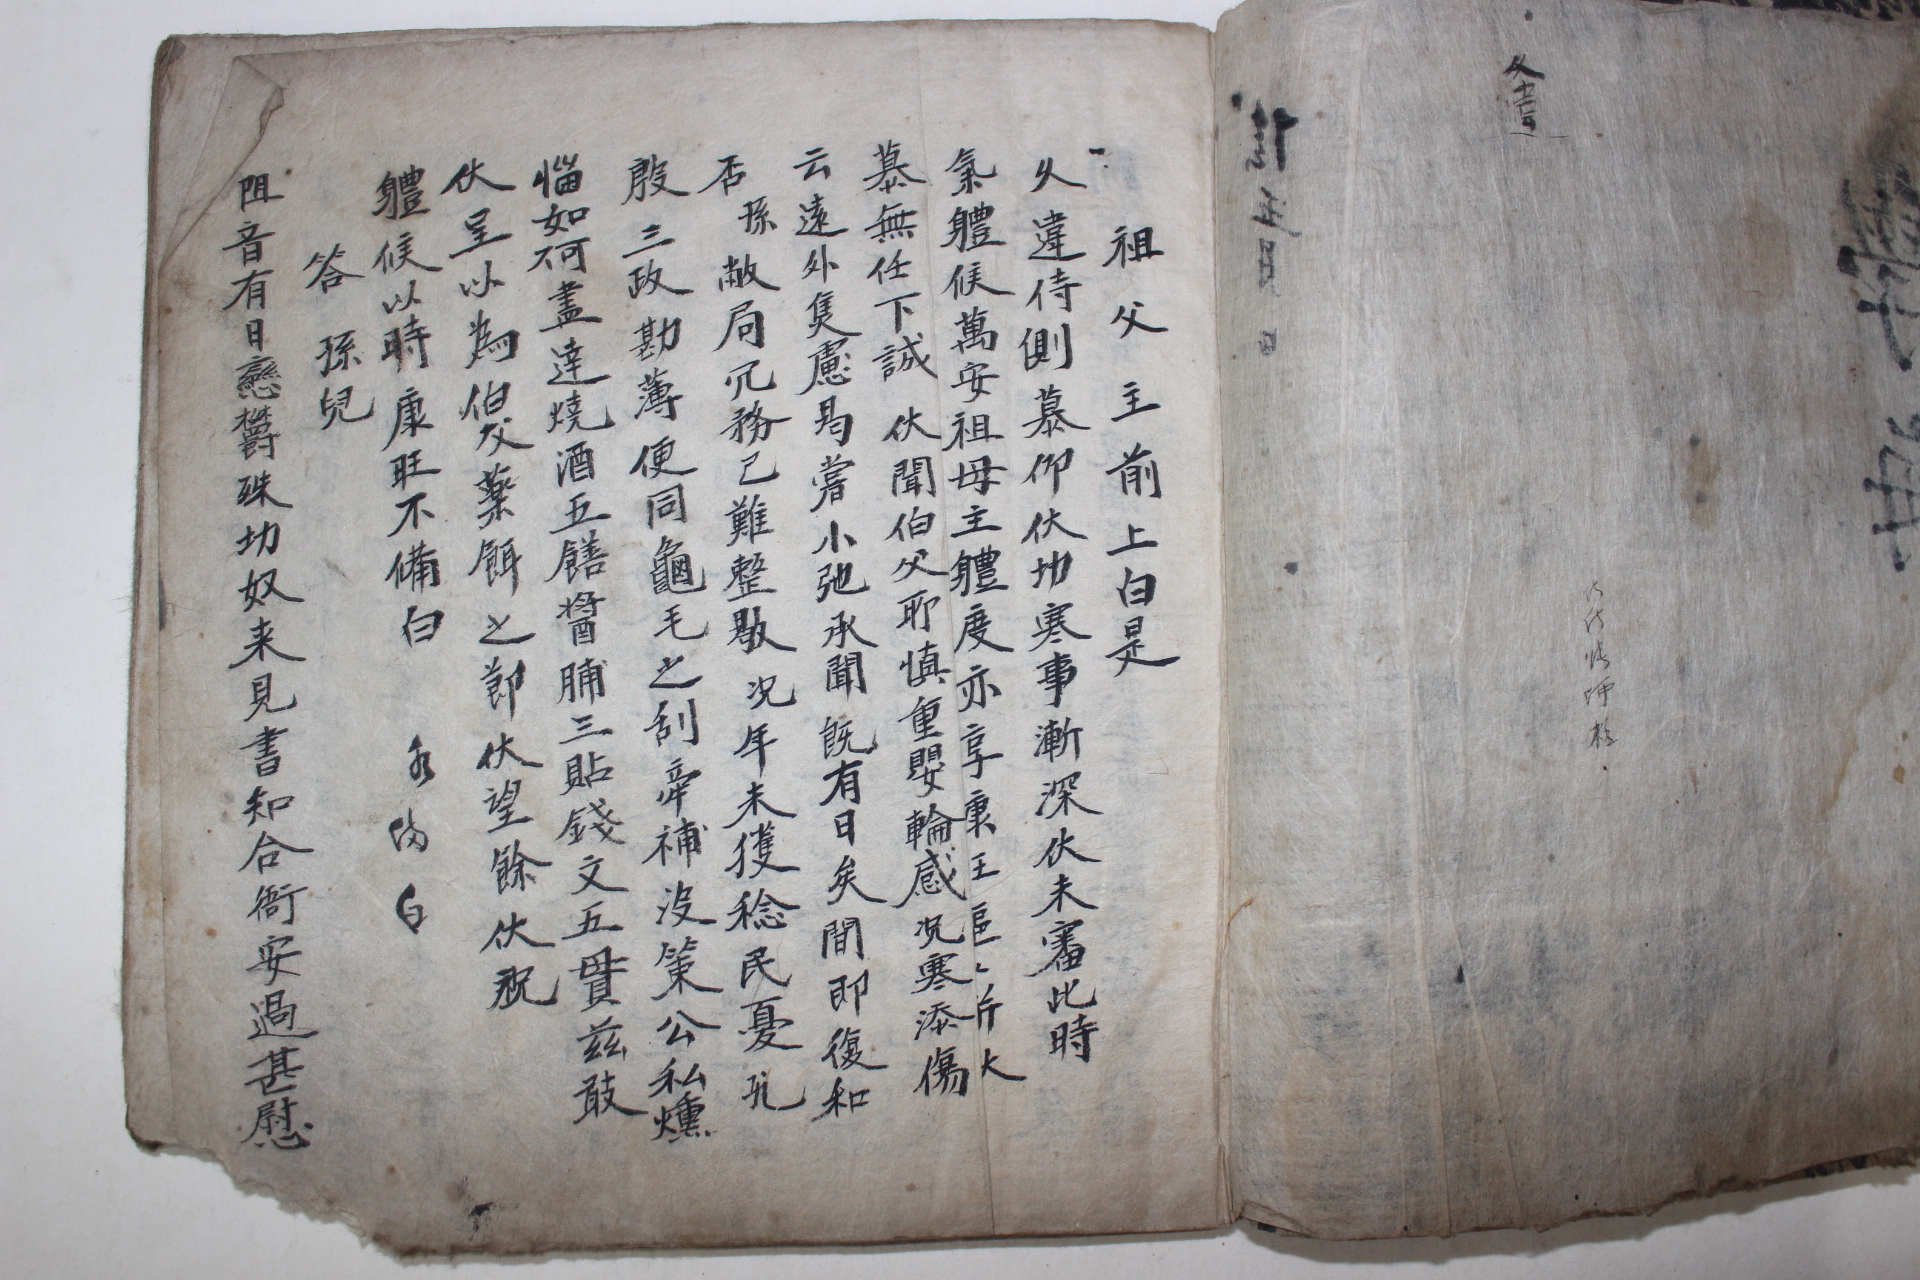 久違
祖父主前上白是
久違侍側慕仰伏切寒事漸深伏未審此時
氣體候萬安祖母主體度亦享康旺區〻祈伏
慕無任下誠 伏聞伯父耶慎重嬰輪感況寒添傷
云遠外隻慮曷嘗小弛承聞旣有日矣間即復和
否孫敝局冗務已難整勘況年未獲稔民憂孔
殷三政勘薄便同龜毛之刮牽補沒策公私燻
惱如何盡達燒酒五饍醬脯三貼錢文五貫茲敢
伏呈以為伯父藥餌之節伏望餘伏祝
體候以時康旺不備白
答孫兒
阻音有日戀欝殊切奴来見書知合衙安過甚慰